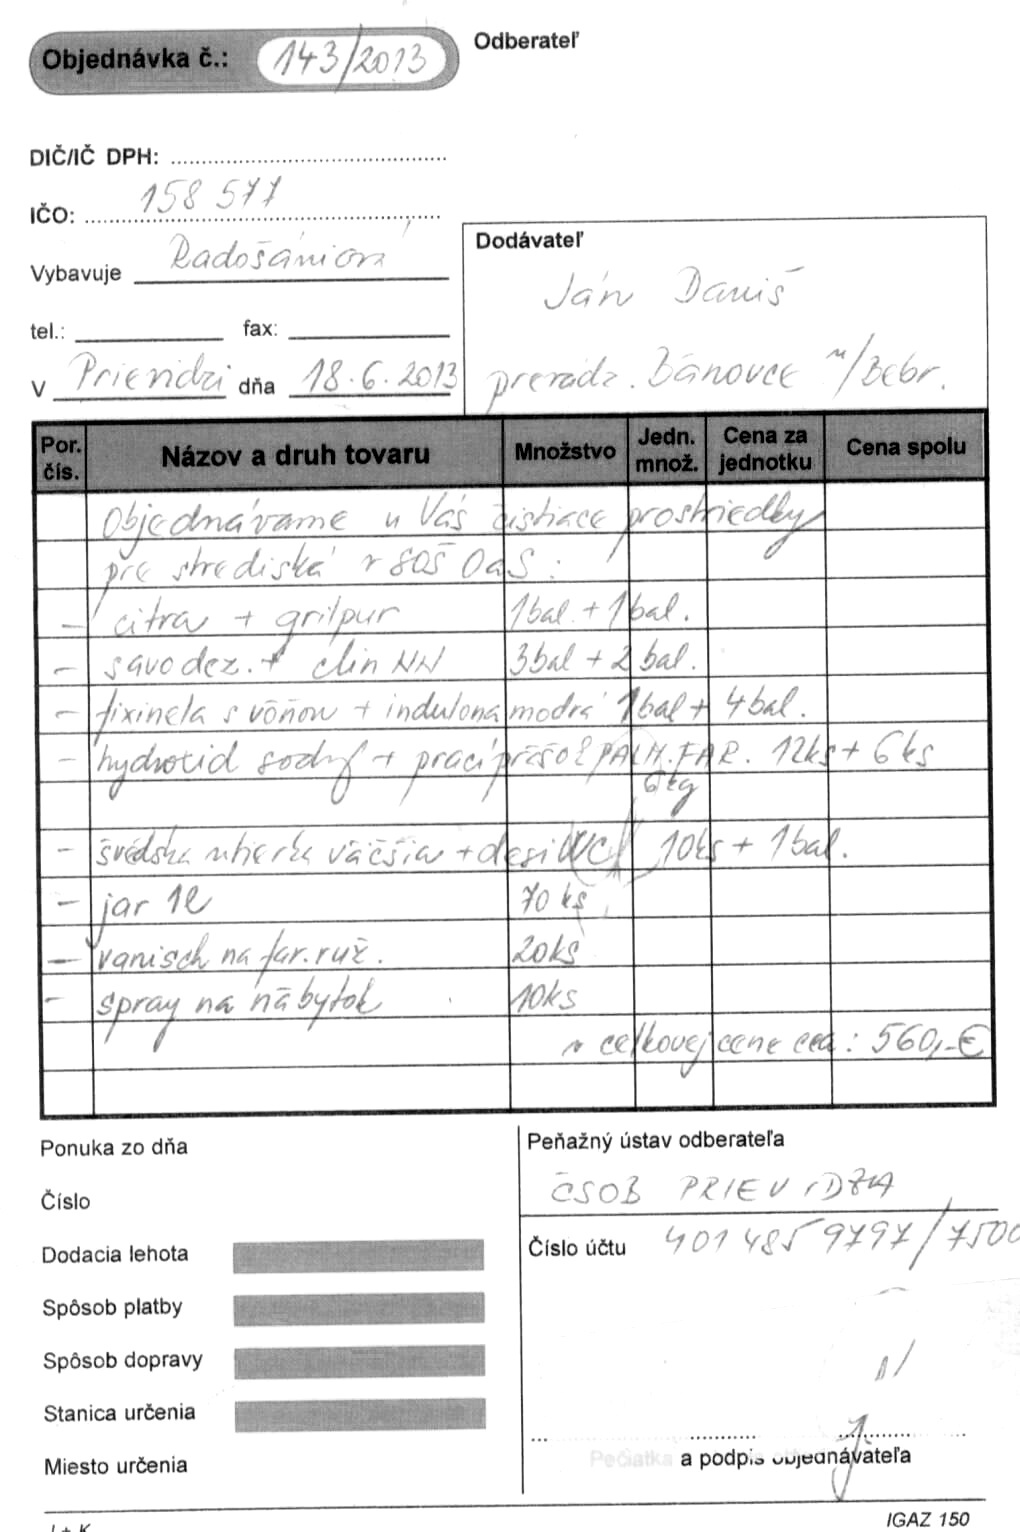 Objednávka č.: 143/2013
Odberateľ
DIČ/IČ DPH:
IČO: 158 577
Vybavuje Radošániová
tel.: fax:
V Prievidzi dňa 18.6.2013
Dodávateľ
Ján Daniš
prevádz. Bánovce n/Bebr.
Por. čís. Názov a druh tovaru Množstvo Jedn. množ. Cena za jednotku Cena spolu
Objednávame u Vás čistiace prostriedky
pre strediská v SOŠ OaS:
- citra + grilpur 1bal + 1bal.
- savo dez. + clin NN 3bal + 2 bal.
- fixinela s vôňou + indulona modrá 1bal + 4bal.
- hydroxid sodný + prací PALM. FAR. 12ks + 6 ks
6kg
- švédska utierka väčšia + desi WC 10ks + 1bal.
- jar 1l 70 ks
- vanisch na far. ruž. 20ks
- spray na nábytok 10ks
v celkovej cene cca: 560,-€
Ponuka zo dňa
Číslo
Dodacia lehota
Spôsob platby
Spôsob dopravy
Stanica určenia
Miesto určenia
Peňažný ústav odberateľa
ČSOB PRIEVIDZA
Číslo účtu 401 485 9797/7500
Pečiatka a podpis objednávateľa
IGAZ 150